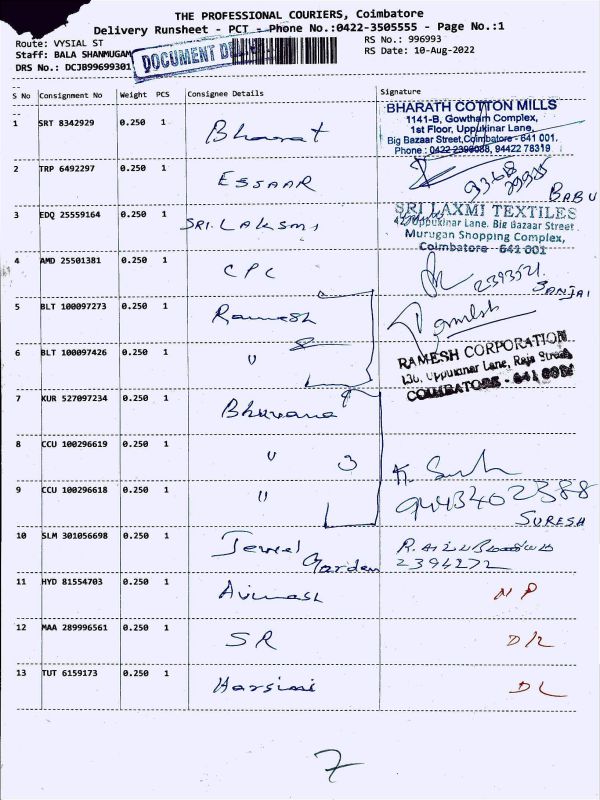 THE PROFESSIONAL COURIERS, Coimbatore
Delivery Runsheet - PCT - Phone No.:0422-3505555 - Page No.:1
Route: VYSIAL ST RS No.: 996993
Staff: BALA SHANMUGAM RS Date: 10-Aug-2022
DRS No.: DCJB99699301
DOCUMENT
S No Consignment No Weight PCS Consignee Details Signature
1 SRT 8342929 0.250 1 Bharat
BHARATH COTTON MILLS
1141-B, Gowtham Complex,
1st Floor, Uppukinar Lane,
Big Bazaar Street, Coimbatore - 641 001.
Phone : 0422 2396088, 94422 78319
2 TRP 6492297 0.250 1 ESSAAR
BABU
3 EDQ 25559164 0.250 1 SRI.LAKSMI
SRI LAXMI TEXTILES
Uppukinar Lane, Big Bazaar Street
Murugan Shopping Complex,
Coimbatore 641 001
4 AMD 25501381 0.250 1 CPC
2393521.
SANJAI
5 BLT 100097273 0.250 1 Ramesh
Ramesh
6 BLT 100097426 0.250 1 "
RAMESH CORPORATION
136, Uppukinar Lane, Raja Street
COIMBATORE - 641 001
7 KUR 527097234 0.250 1 Bhuvana
8 CCU 100296619 0.250 1 " 3
9 CCU 100296618 0.250 1 "
9443402388
SURESH
10 SLM 301056698 0.250 1 Jewel
Garden
2394272
11 HYD 81554703 0.250 1 Avinash NP
12 MAA 289996561 0.250 1 SR D/L
13 TUT 6159173 0.250 1 Harsini DL
7